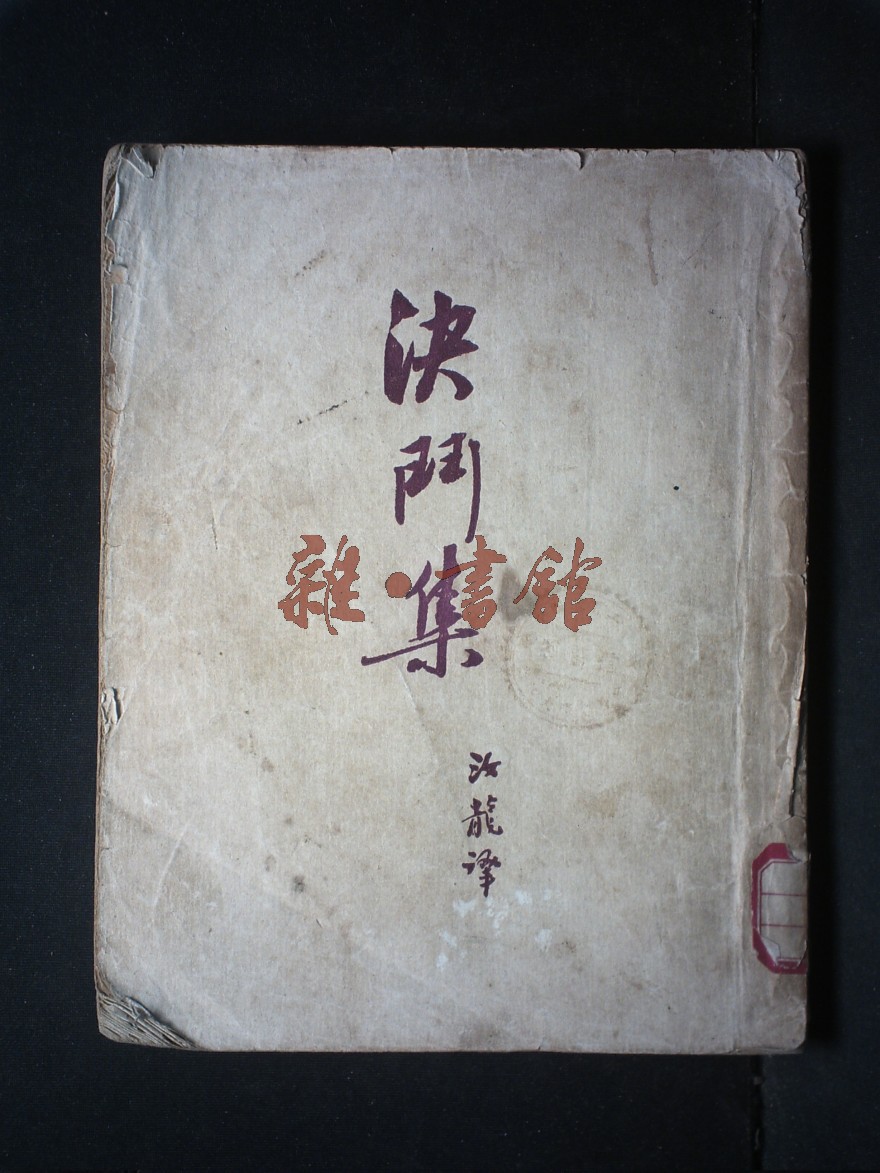 決鬥集
雜·書館
汝龍譯